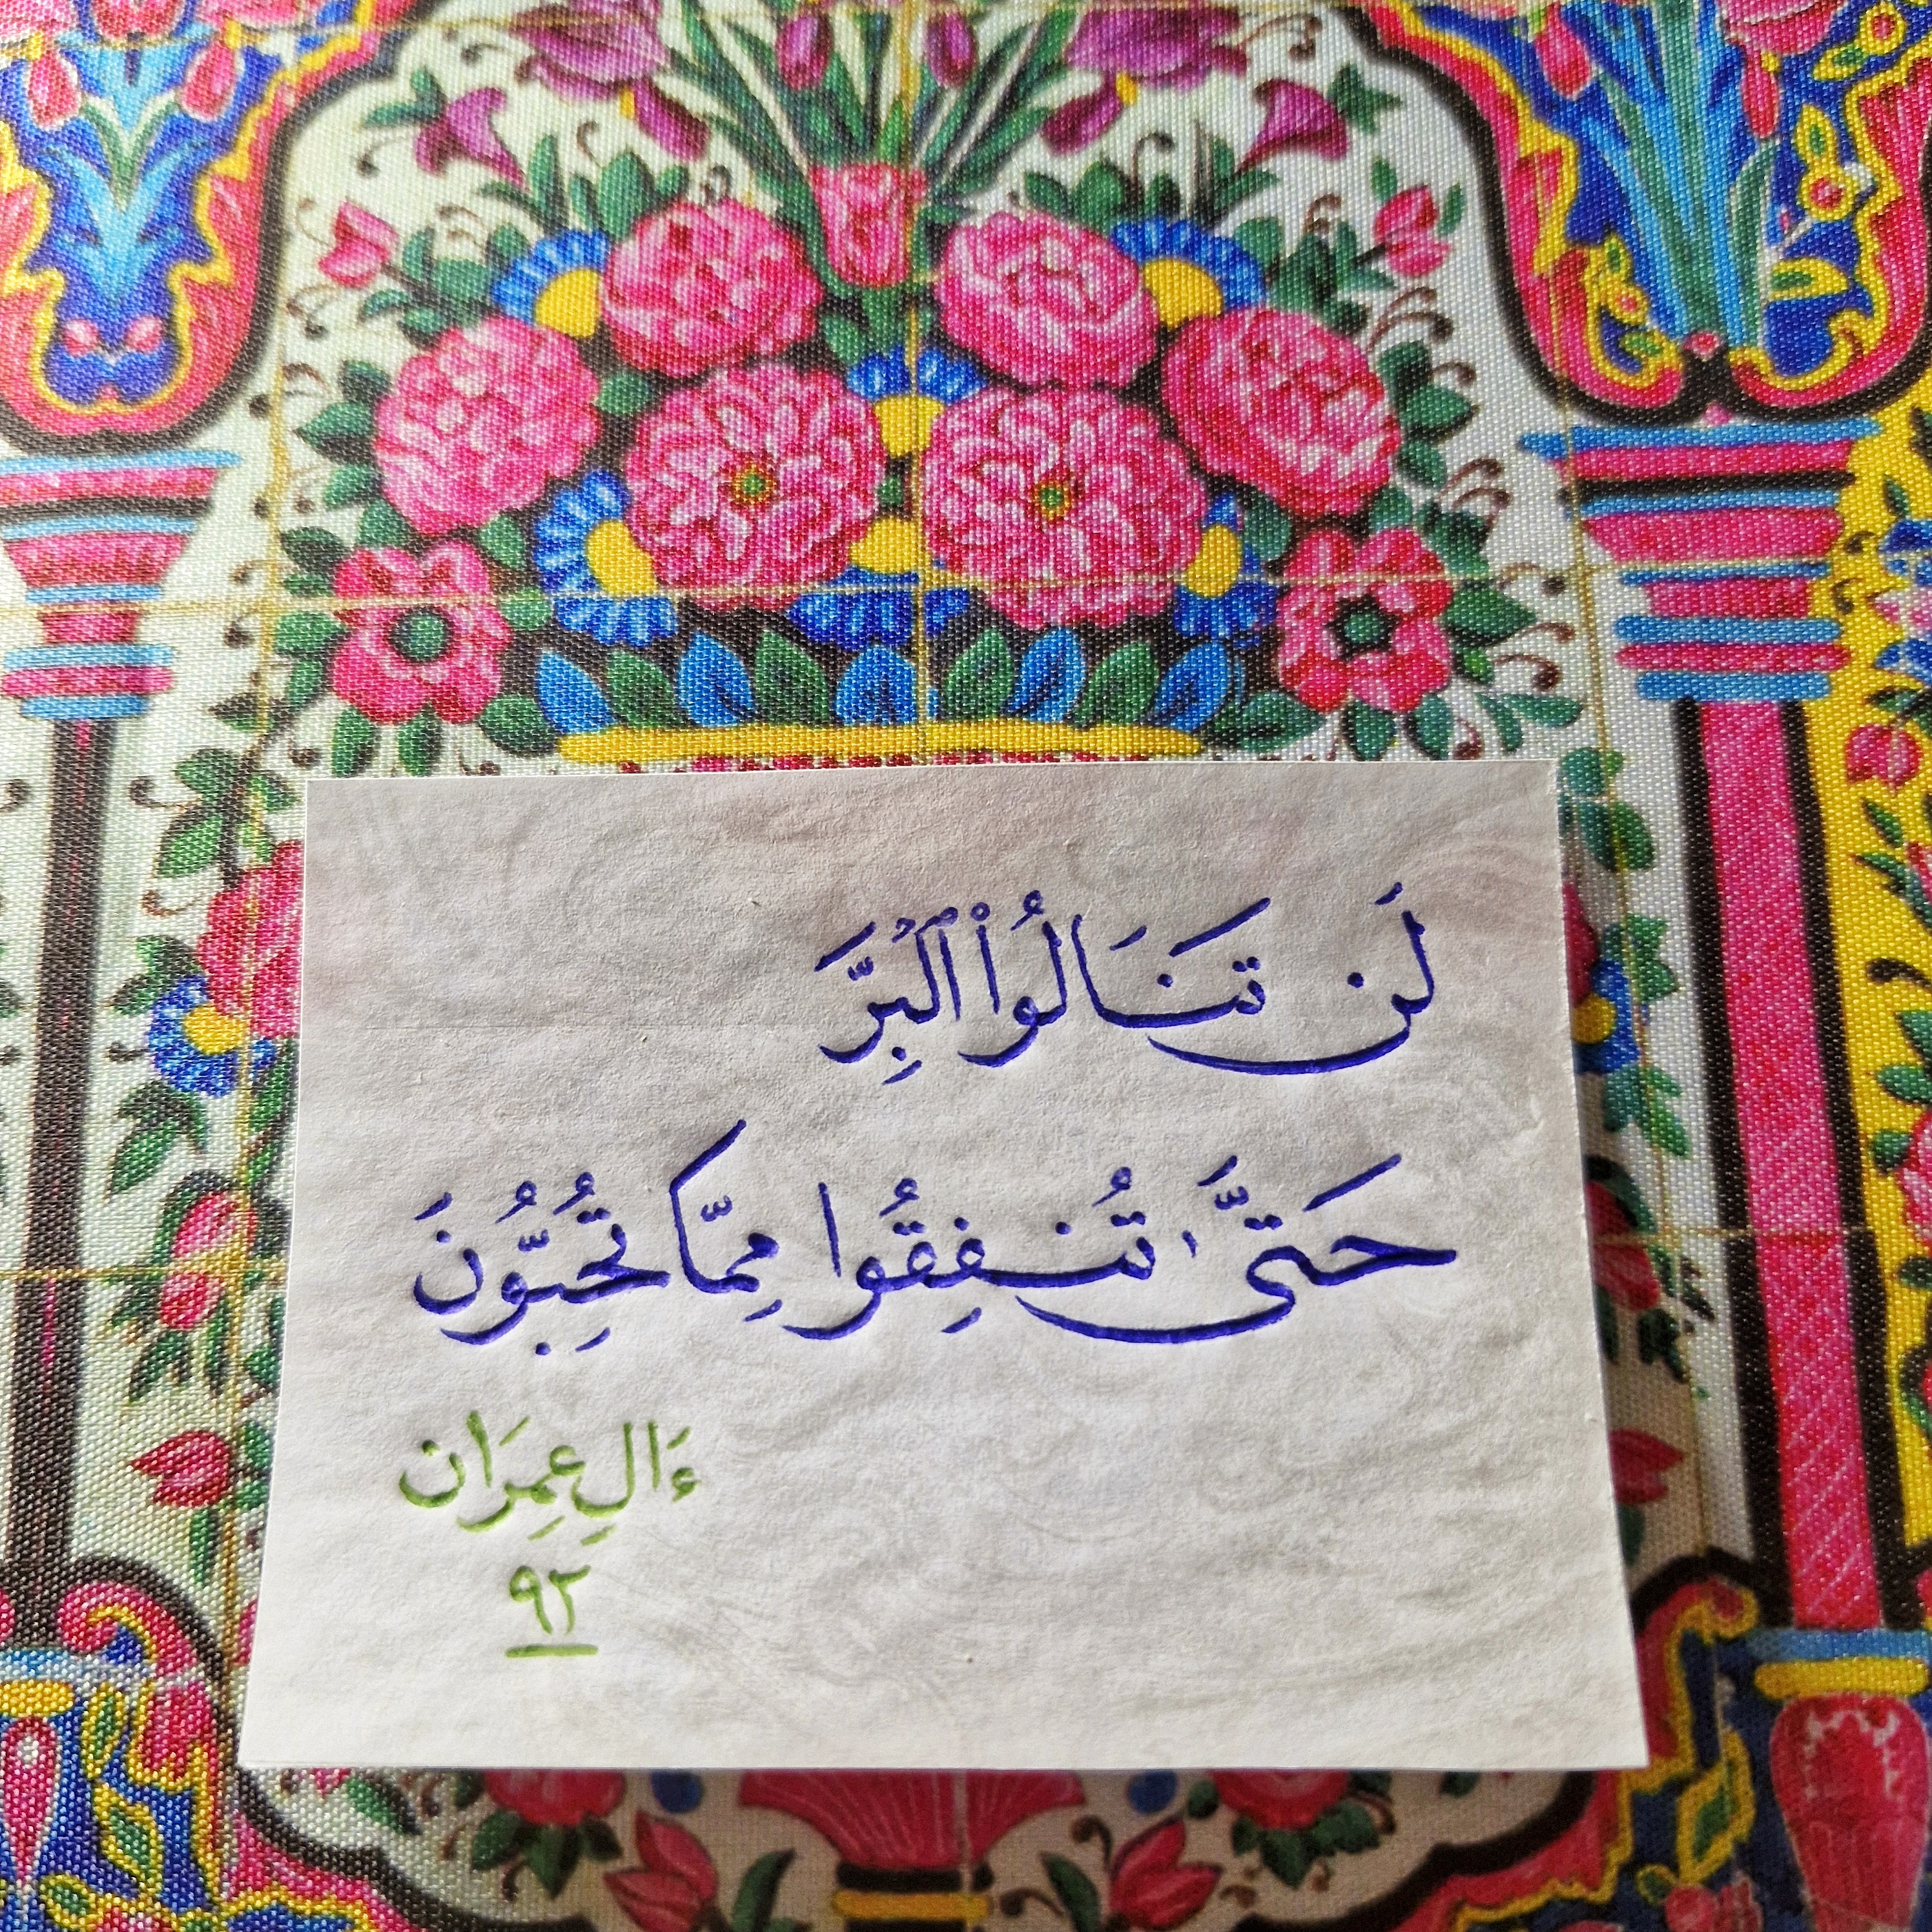 لَن تَنَالُوا۟ ٱلْبِرَّ
حَتَّىٰ تُنفِقُوا مِمَّا تُحِبُّونَ
ءَالِ عِمِرَان
٩٢